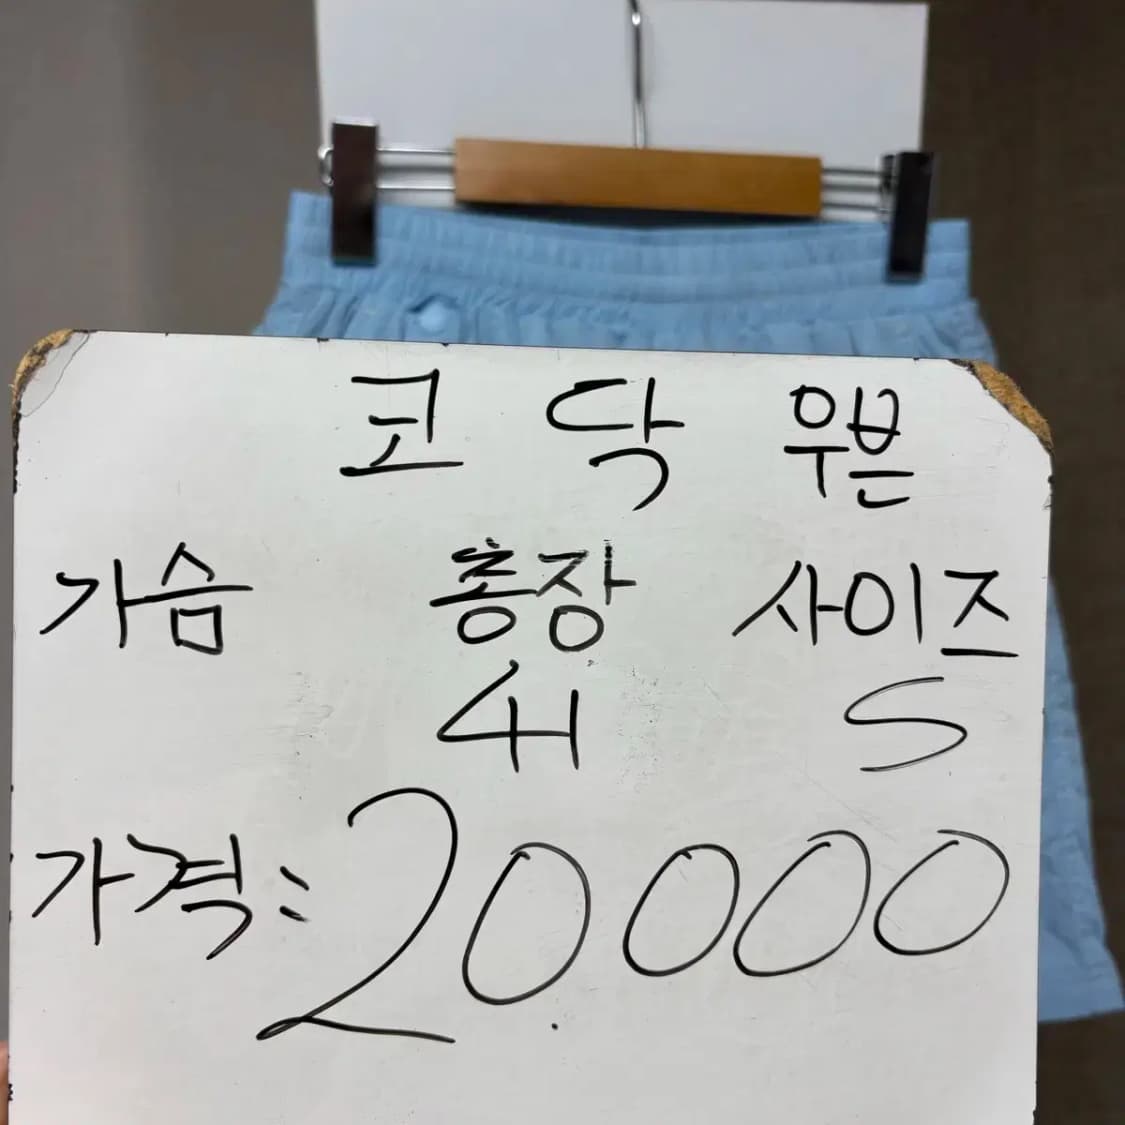 코닥 우븐
가슴 총장 사이즈
41 S
가격: 20000